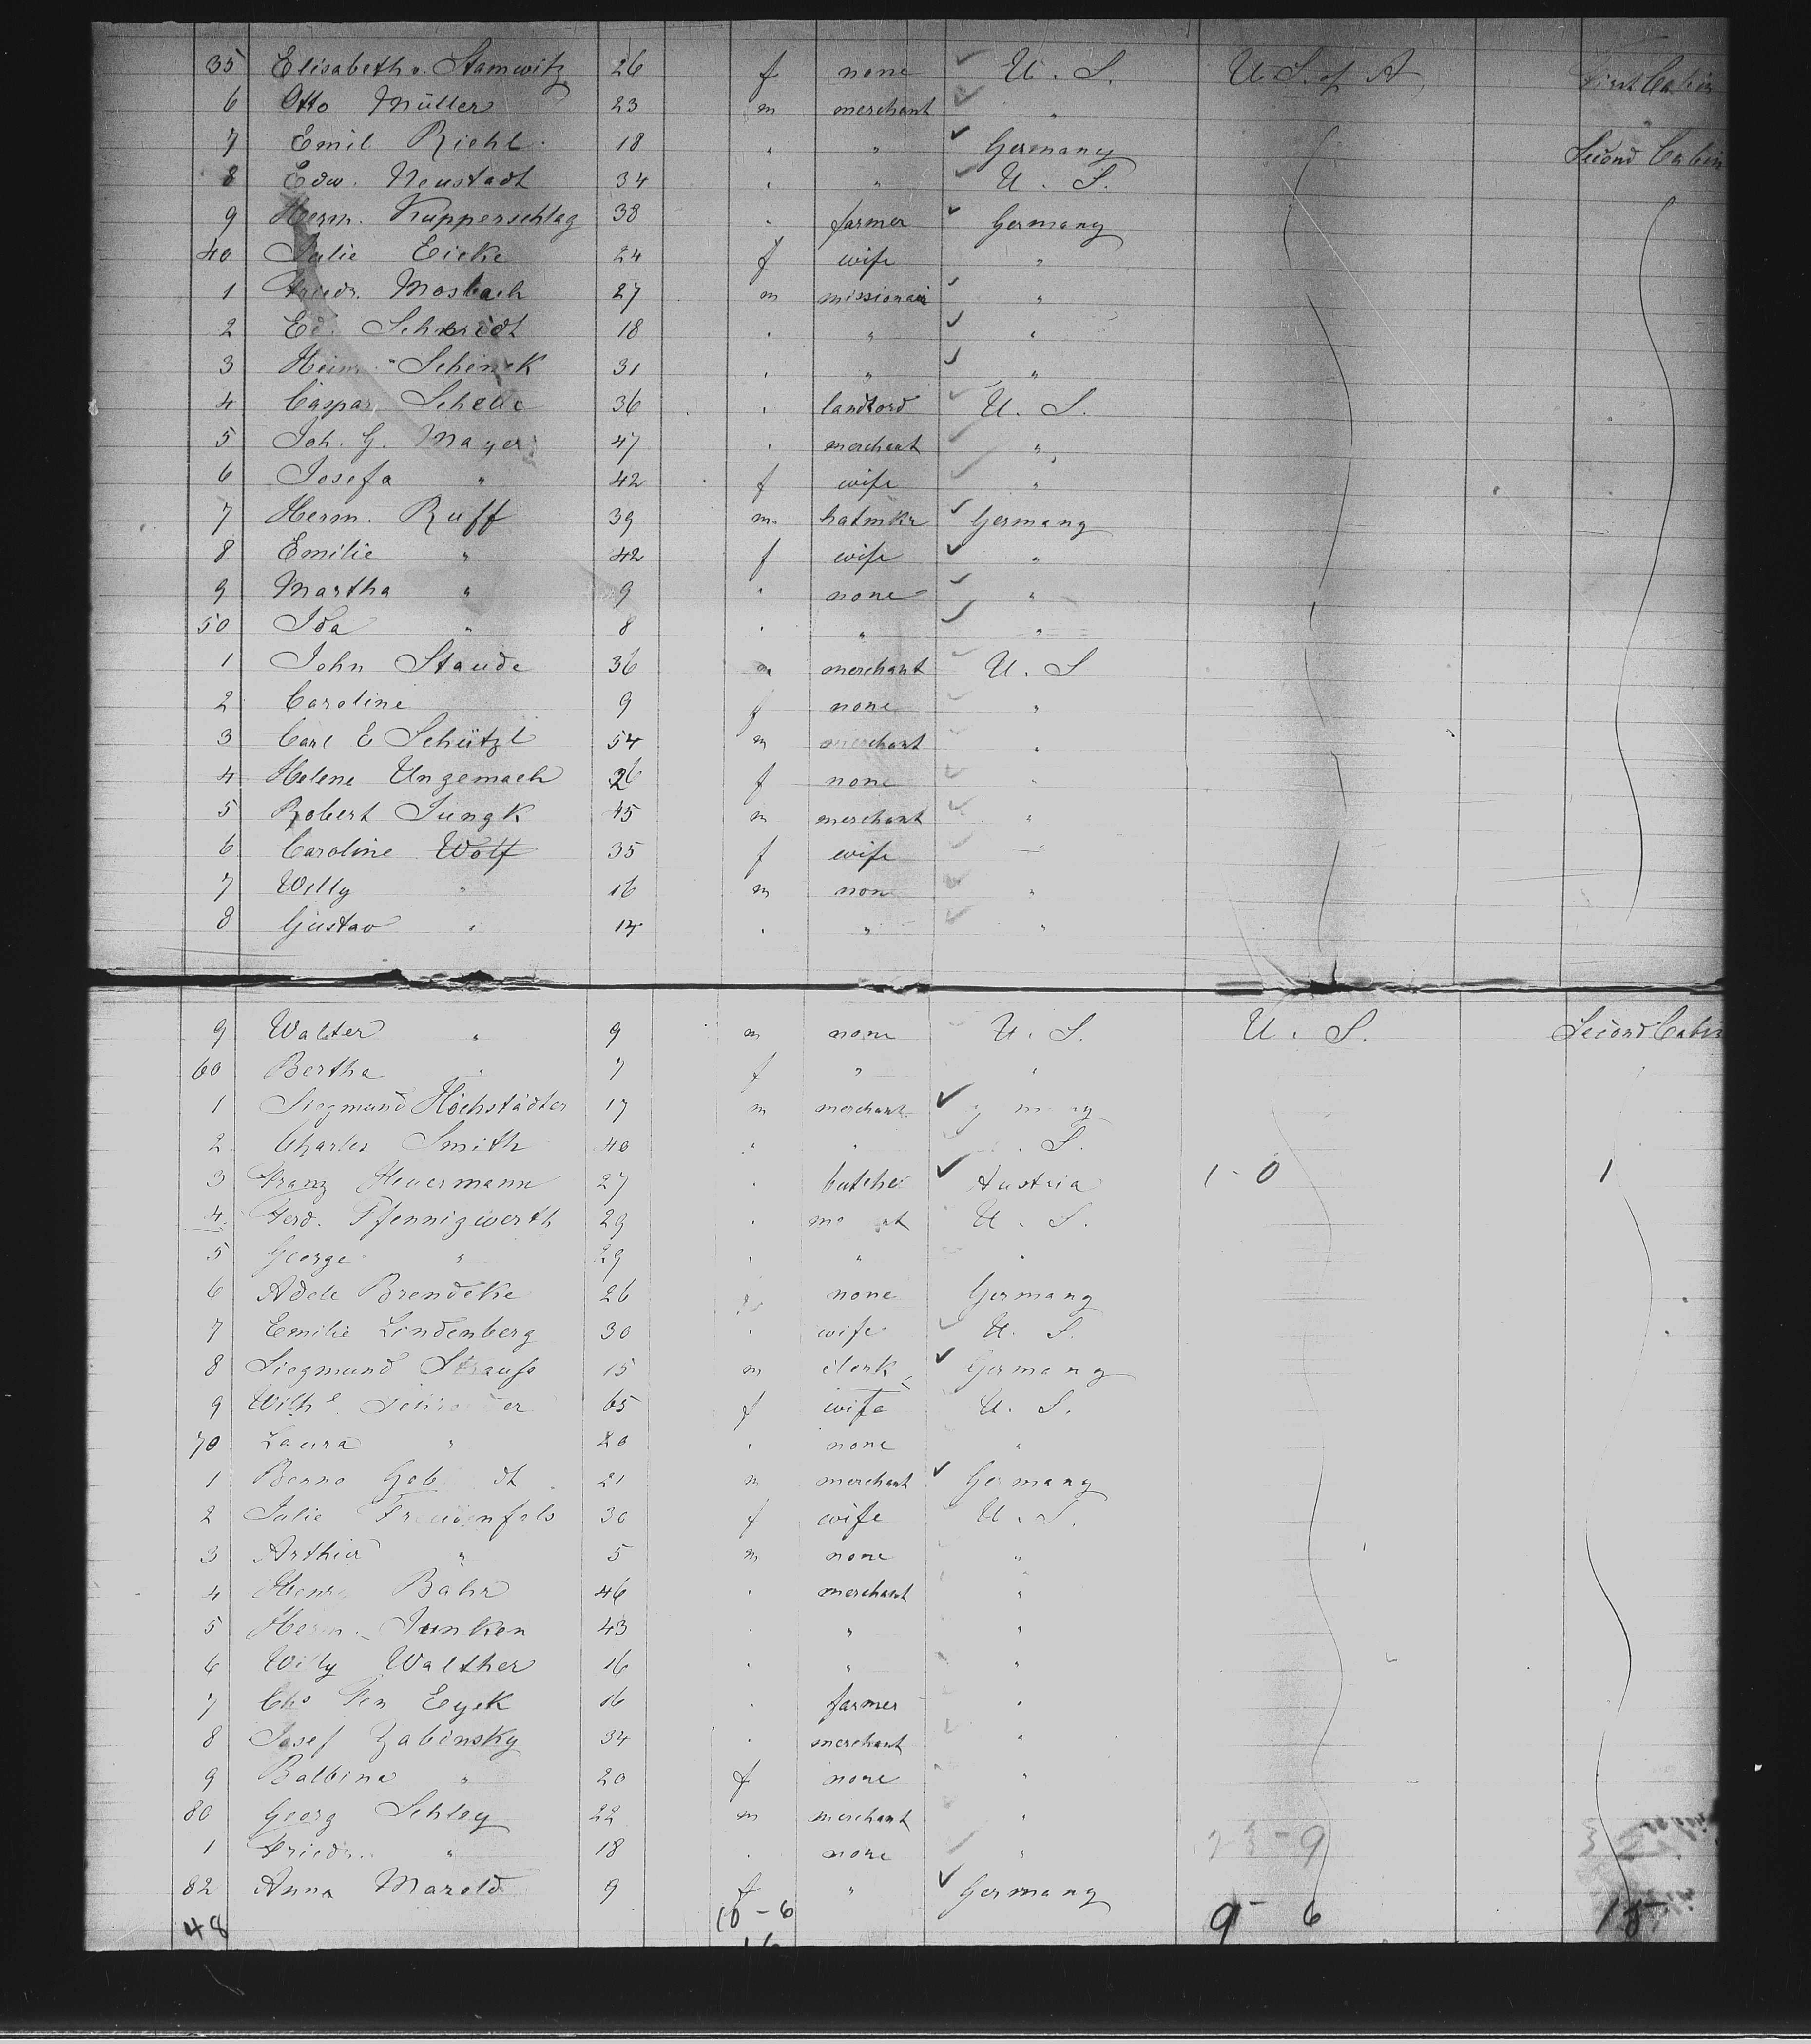 35 Elisabeth v. Stamwitz 26 f none U. S. U. S. of A First Cabin
6 Otto Müller 23 m merchant "
7 Emil Riehl 18 " " Germany Second Cabin
8 Edw. Neustadt 34 " " U. S.
9 Herm. Kupperschlag 38 " farmer Germany
40 Julie Eicke 24 f wife "
1 Friedr. Mosbach 27 m missionair "
2 Ed. Schmidt 18 " " "
3 Heinr. Schenck 31 " " "
4 Caspar 36 " landlord U. S.
5 Joh. G. Mayer 47 " merchant "
6 Josefa " 42 f wife "
7 Herm. Ruff 39 m hatmkr Germany
8 Emilie " 42 f wife "
9 Martha " 9 " none "
50 Ida " 8 " " "
1 John Staude 36 m merchant U. S
2 Caroline 9 f none "
3 Carl E Schützl 54 m merchant "
4 Helene Ungemach 26 f none "
5 Robert Jungk 45 m merchant "
6 Caroline Wolf 35 f wife "
7 Willy " 16 m non "
8 Gustav " 14 " " "
9 Walter " 9 m none U. S. U. S. Second Cabin
60 Bertha " 7 f " "
1 Siegmund Höchstädter 17 m merchant
2 Charles Smith 40 " " S.
3 Franz Heuermann 27 " butcher Austria 1-0 1
4 Ferd. Pfennigwerth 29 " U. S.
5 George " 29 " " "
6 Adele Brendeke 26 none Germany
7 Emilie Lindenberg 30 " wife U. S.
8 Siegmund Strauss 15 m clerk Germany
9 Wilhe 65 f wife U. S.
70 Laura " 20 " none "
1 Benno 21 m merchant Germany
2 Julie Freudenfels 30 f wife U. S.
3 Arthur " 5 m none "
4 Henry Bahr 46 " merchant "
5 Herm. Junken 43 " " "
6 Willy Walther 16 " " "
7 Chs Ten Eyck 16 " farmer "
8 Josef Zabinsky 34 " merchant "
9 Balbina " 20 f none "
80 Georg Schley 22 m merchant "
1 Friedr. " 18 " none " 23-9
82 Anna Marold 9 f " Germany
48 10-6 9-6 15
16